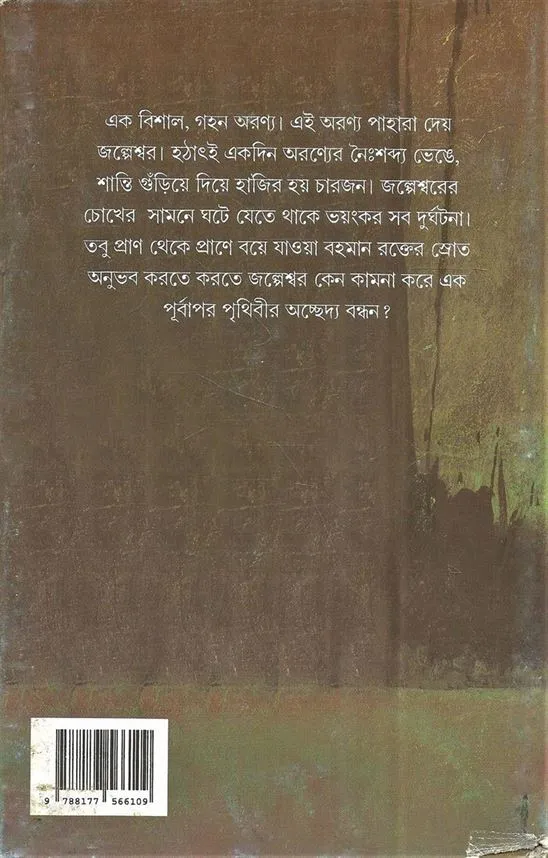 এক বিশাল, গহন অরণ্য। এই অরণ্য পাহারা দেয়
জল্পেশ্বর। হঠাৎই একদিন অরণ্যের নৈঃশব্দ্য ভেঙে,
শান্তি গুঁড়িয়ে দিয়ে হাজির হয় চারজন। জল্পেশ্বরের
চোখের সামনে ঘটে যেতে থাকে ভয়ংকর সব দুর্ঘটনা।
তবু প্রাণ থেকে প্রাণে বয়ে যাওয়া বহমান রক্তের স্রোত
অনুভব করতে করতে জল্পেশ্বর কেন কামনা করে এক
পূর্বাপর পৃথিবীর অচ্ছেদ্য বন্ধন?
9 788177 566109